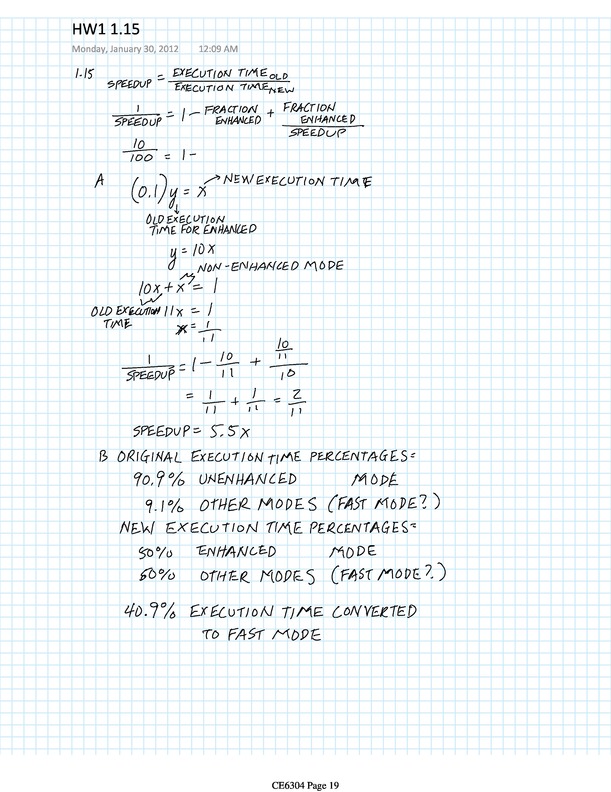 HW1 1.15
Monday, January 30, 2012 12:09 AM
1.15 SPEEDUP = EXECUTION TIME OLD / EXECUTION TIME NEW
1 / SPEEDUP = 1 - FRACTION ENHANCED + FRACTION ENHANCED / SPEEDUP
10 / 100 = 1 -
A (0.1) y = x → NEW EXECUTION TIME
OLD EXECUTION
TIME FOR ENHANCED
y = 10x
NON-ENHANCED MODE
10x + x = 1
OLD EXECUTION TIME 11x = 1
x = 1 / 11
1 / SPEEDUP = 1 - 10 / 11 + 10 / 11 / 10
= 1 / 11 + 1 / 11 = 2 / 11
SPEEDUP = 5.5x
B ORIGINAL EXECUTION TIME PERCENTAGES=
90.9% UNENHANCED MODE
9.1% OTHER MODES (FAST MODE?)
NEW EXECUTION TIME PERCENTAGES=
50% ENHANCED MODE
50% OTHER MODES (FAST MODE?)
40.9% EXECUTION TIME CONVERTED
TO FAST MODE
CE6304 Page 19